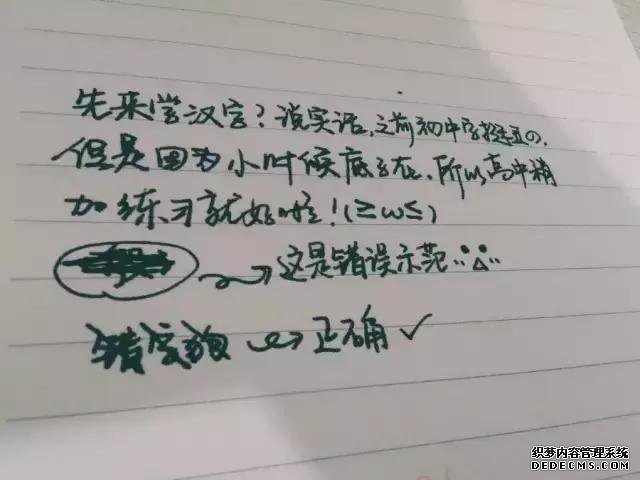 先来尝汉字？说实话，之前初中字挺丑の，
但是因为小时候底子在，所以高中稍
加练习就好啦！(≥ω≤)
→这是错误示范
→正确✓
织梦内容管理系统
DEDECMS.COM